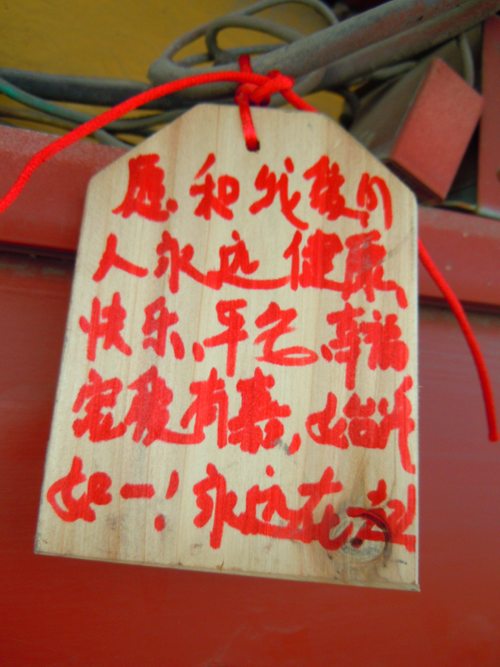 愿和我爱的
人永远健康、
快乐、平安、幸福
宠爱有、始终
如一！永远在一起